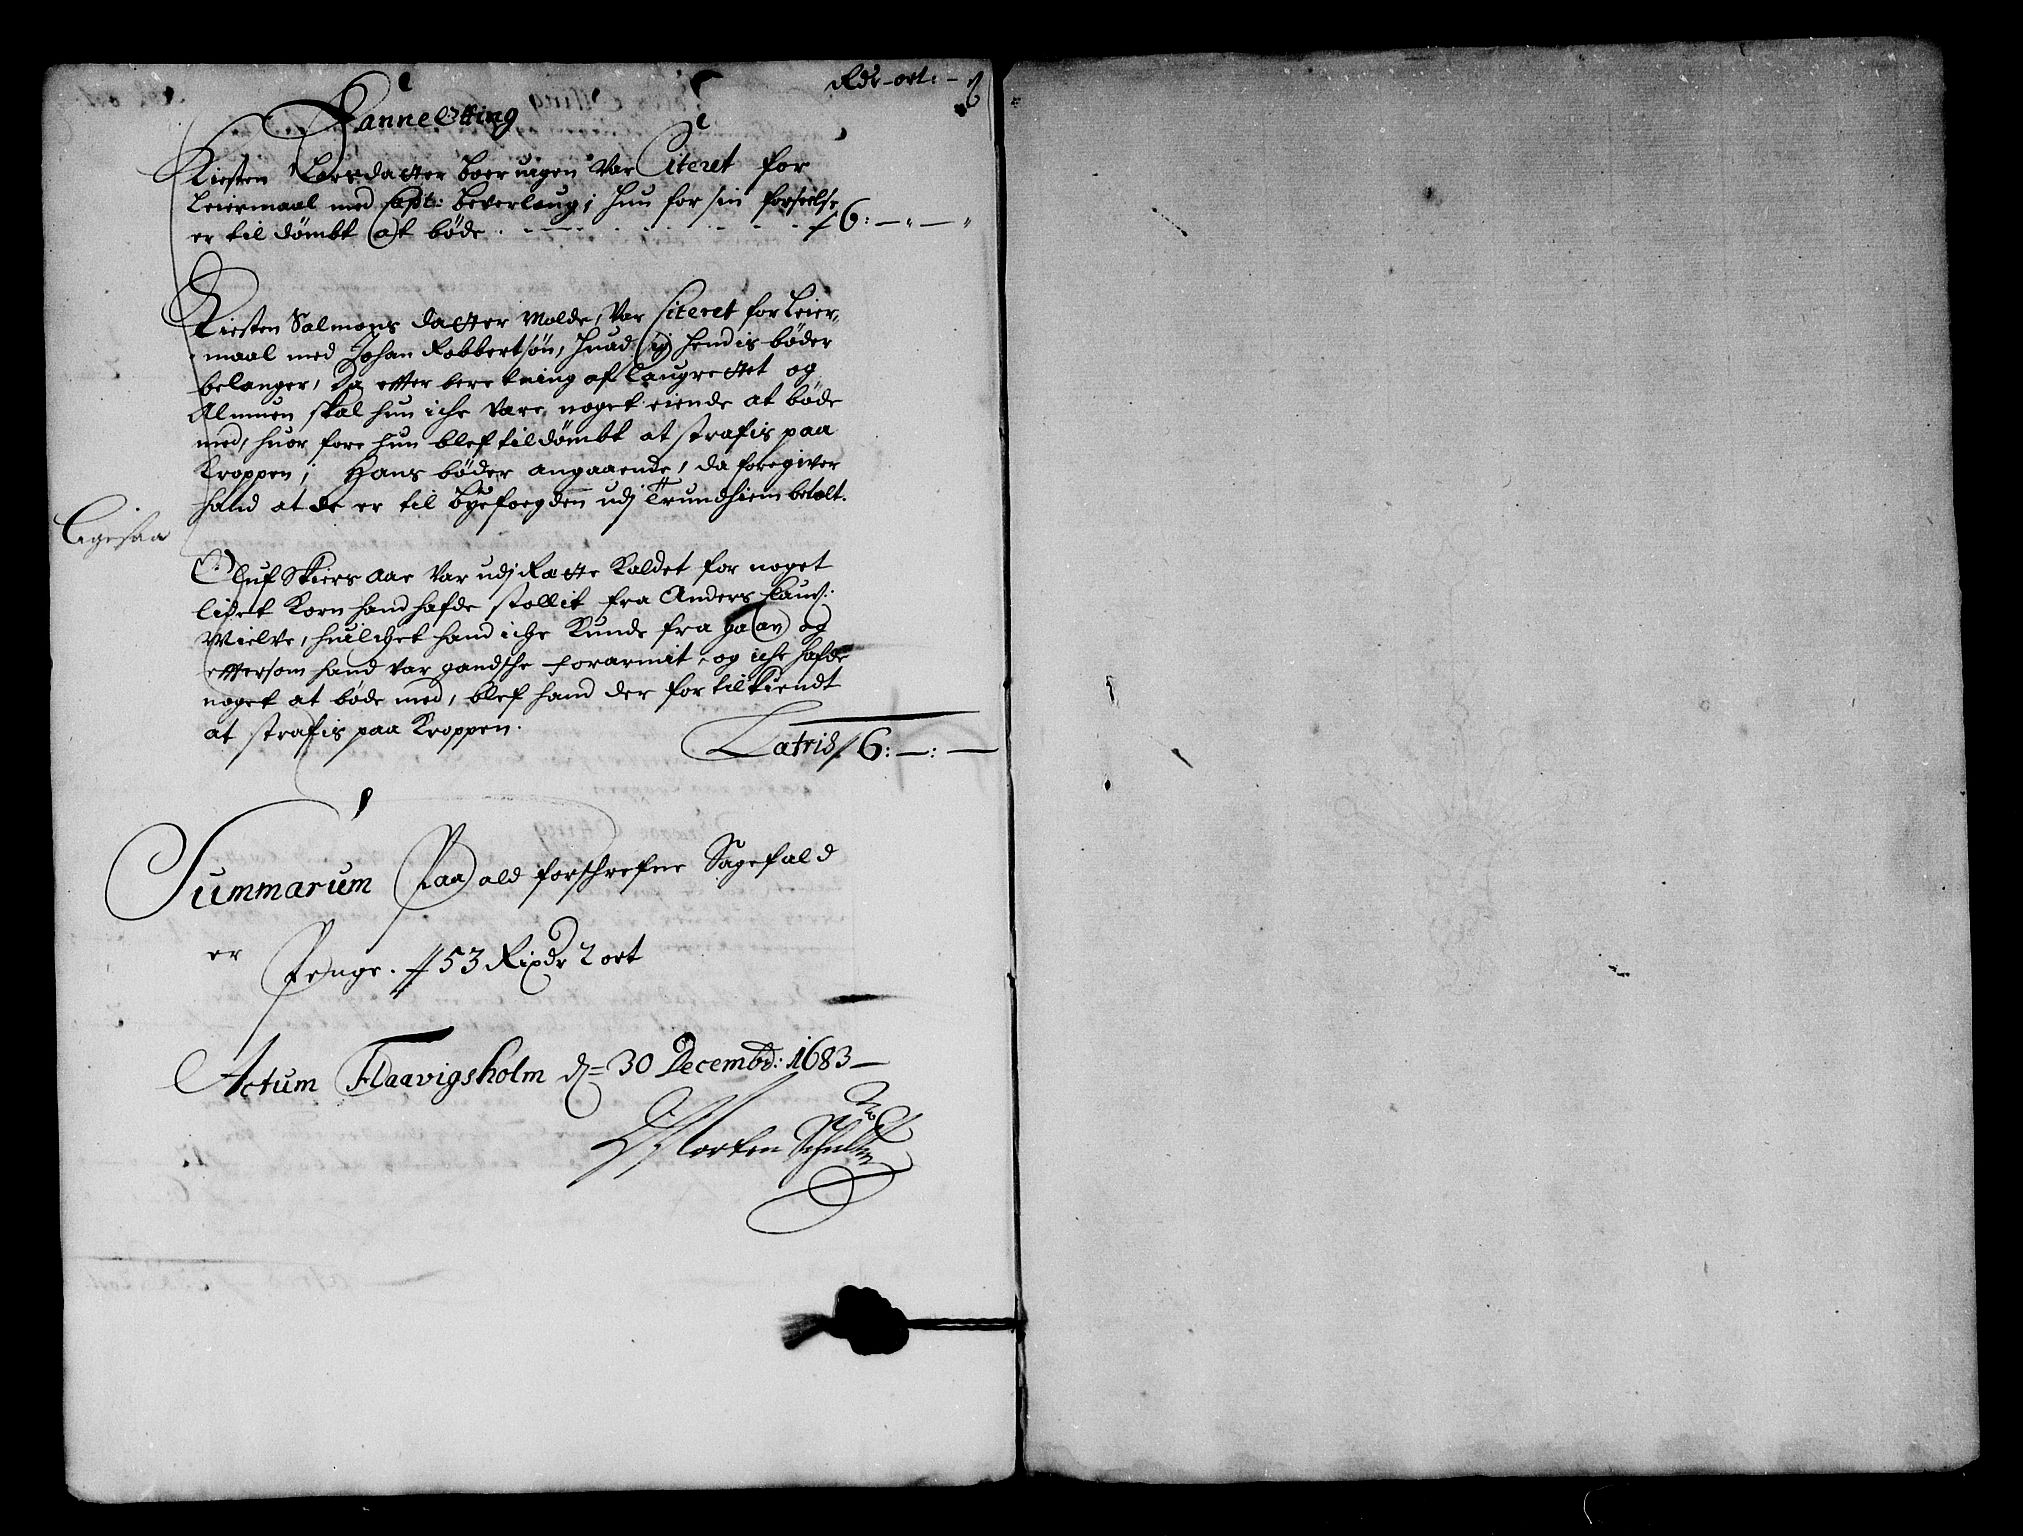 Rdr - ort: - ß
Vannel Otting
Kirsten Larsdatter boer uigen Var Citeret for
Leiermaal med Capt: Beverloug; Hun for sin forseelse
er til dømbt at bøde . - - - - - - - - 6: — " — "
Kirsten Salmons datter Molde, Var Citeret for Leier-
maal med Johan Robbertsøn, Huad hendis bøder
belanger, da efter beretning af laugrettet og
Almuen skal hun iche være noget eiende at bøde
med, huor fore hun blef tildømbt at strafis paa
Kroppen; Hans bøder angaaende, da foregiver
hand at de er til byefoegden udj Trundhiem betalt.
Ligesaa
Oluf Skiers aae Var udj Rette Kaldet for noget
lidet Korn hand hafde stollit fra Anders Clauß:
Mielve, huilchet hand iche Kunde fra gaa og
effersom hand var gandsche forarmit, og iche hafde
noget at bøde med, blef hand der for tilkiendt
at strafis paa Kroppen.
Latris 6: — : —
Summarum Paa ald forschrefne Sagefald
er Penge. 53 Rixdr 2 ort
Actum Flaavigsholm d= 30 Decembr: 1683 —
Morten Schultz